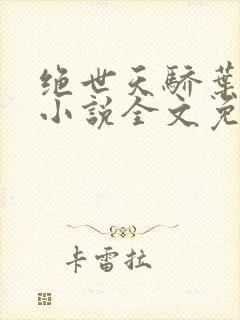 绝世天骄叶
小说全文免
卡雷拉